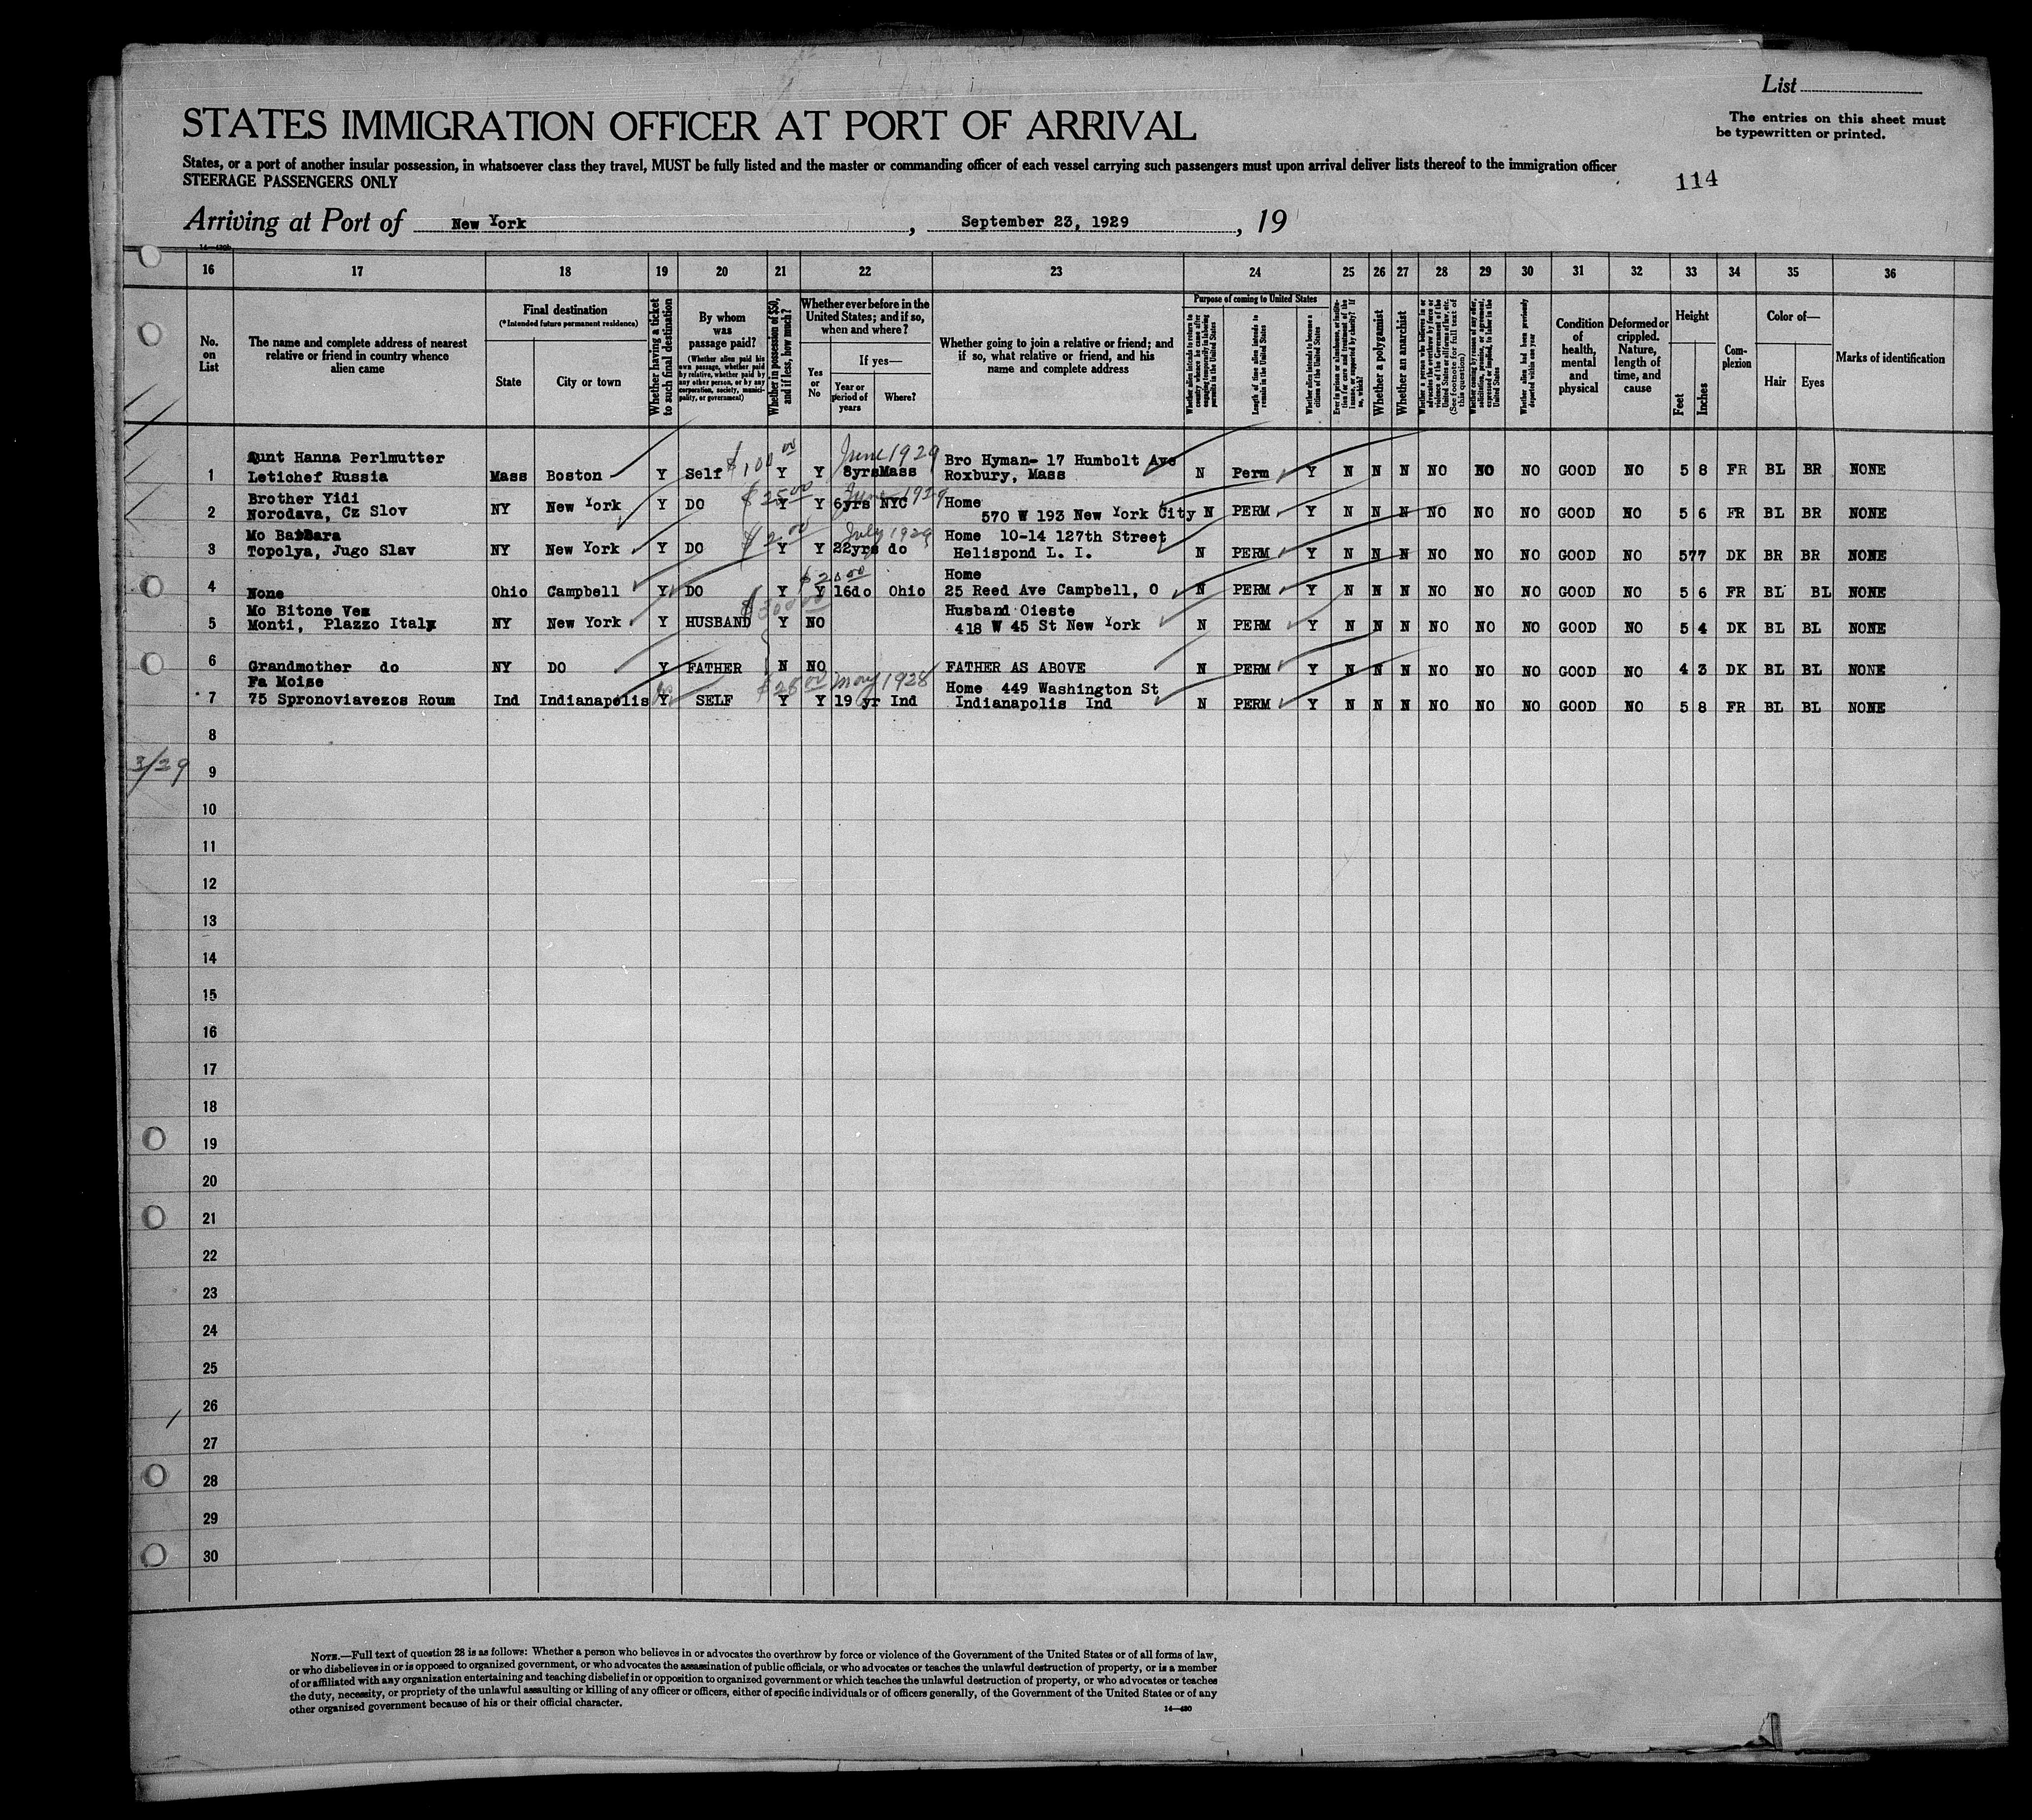 List
STATES IMMIGRATION OFFICER AT PORT OF ARRIVAL
The entries on this sheet must
be typewritten or printed.
States, or a port of another insular possession, in whatsoever class they travel, MUST be fully listed and the master or commanding officer of each vessel carrying such passengers must upon arrival deliver lists thereof to the immigration officer
STEERAGE PASSENGERS ONLY
114
Arriving at Port of New York, September 23, 1929, 19
16 17 18 19 20 21 22 23 24 25 26 27 28 29 30 31 32 33 34 35 36
No. on List
The name and complete address of nearest relative or friend in country whence alien came
Final destination
(*Intended future permanent residence)
State
City or town
Whether having a ticket to such final destination
By whom was passage paid?
(Whether alien paid his own passage, whether paid by relative, whether paid by any other person, or by any corporation, society, municipality, or government)
Whether in possession of $50, and if less, how much?
Whether ever before in the United States; and if so, when and where?
Yes or No
If yes—
Year or period of years
Where?
Whether going to join a relative or friend; and if so, what relative or friend, and his name and complete address
Purpose of coming to United States
Length of time alien intends to remain in the United States
Whether alien intends to become a citizen of the United States
Whether a polygamist
Whether an anarchist
(See footnote for full text of this question)
Whether alien had been previously deported within one year
Condition of health, mental and physical
Deformed or crippled. Nature, length of time, and cause
Height
Feet
Inches
Complexion
Color of—
Hair
Eyes
Marks of identification
June 1929
$100 00
1 Aunt Hanna Perlmutter
Letichef Russia Mass Boston Y Self Y Y 8yrs Mass Bro Hyman- 17 Humbolt Ave
Roxbury, Mass N Perm Y N N N NO NO NO GOOD NO 5 8 FR BL BR NONE
$25 00 June 1929
2 Brother Yidi
Norodava, Cz Slov NY New York Y DO Y Y 6yrs NYC Home
570 W 193 New York City N PERM Y N N N NO NO NO GOOD NO 5 6 FR BL BR NONE
July 1929
3 Mo Barbara
Topolya, Jugo Slav NY New York Y DO Y Y 22yrs do Home 10-14 127th Street
Helispond L. I. N PERM Y N N N NO NO NO GOOD NO 577 DK BR BR NONE
4 None Ohio Campbell Y DO Y Y 16do Ohio Home
25 Reed Ave Campbell, O N PERM Y N N N NO NO NO GOOD NO 5 6 FR BL BL NONE
5 Mo Bitone Vem
Monti, Plazzo Italy NY New York Y HUSBAND Y NO Husband Oieste
418 W 45 St New York N PERM Y N N N NO NO NO GOOD NO 5 4 DK BL BL NONE
6 Grandmother do NY DO Y FATHER N NO FATHER AS ABOVE N PERM Y N N N NO NO NO GOOD NO 4 3 DK BL BL NONE
$25 00 May 1928
7 Fa Moise
75 Spronoviavezos Roum Ind Indianapolis Y SELF Y Y 19 yr Ind Home 449 Washington St
Indianapolis Ind N PERM Y N N N NO NO NO GOOD NO 5 8 FR BL BL NONE
8
3/29
9
10
11
12
13
14
15
16
17
18
19
20
21
22
23
24
25
26
27
28
29
30
NOTE.—Full text of question 28 is as follows: Whether a person who believes in or advocates the overthrow by force or violence of the Government of the United States or of all forms of law,
or who disbelieves in or is opposed to organized government, or who advocates the assassination of public officials, or who advocates or teaches the unlawful destruction of property, or is a member
of or affiliated with any organization entertaining and teaching disbelief in or opposition to organized government or which teaches the unlawful destruction of property, or who advocates or teaches
the duty, necessity, or propriety of the unlawful assaulting or killing of any officer or officers, either of specific individuals or of officers generally, of the Government of the United States or of any
other organized government because of his or their official character.
14—430